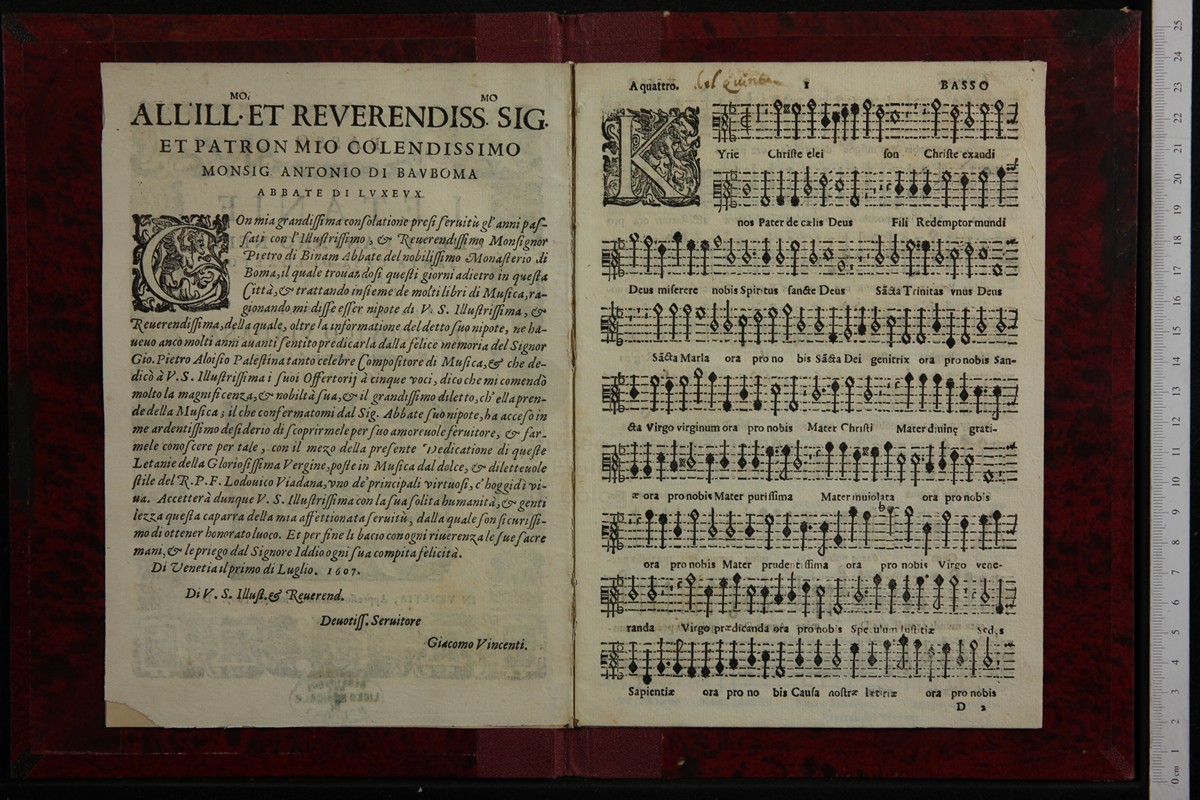 MO. MO
ALL'ILL. ET REVERENDISS. SIG.
ET PATRON MIO COLENDISSIMO
MONSIG. ANTONIO DI BAVBOMA
ABBATE DI LVXEVX.
COn mia grandissima consolatione presi seruitù gl'anni pas-
sati con l'Illustrissimo, & Reuerendissimo Monsignor
Pietro di Binam Abbate del nobilissimo Monasterio di
Boma, il quale trouandosi questi giorni adietro in questa
Città, & trattando insieme de molti libri di Musica, ra-
gionando mi disse esser nipote di V. S. Illustrissima, &
Reuerendissima, della quale, oltre la informatione del detto suo nipote, ne ha-
ueuo anco molti anni auanti sentito predicarla dalla felice memoria del Signor
Gio. Pietro Aloisio Palestina tanto celebre Compositore di Musica, & che de-
dicò à V. S. Illustrissima i suoi Offertorij à cinque voci, dico che mi comendò
molto la magnificenza, & nobiltà sua, & il grandissimo diletto, ch'ella pren-
de della Musica; il che confermatomi dal Sig. Abbate suo nipote, ha acceso in
me ardentissimo desiderio di scoprirmele per suo amoreuole seruitore, & far-
mele conoscere per tale, con il mezo della presente Dedicatione di queste
Letanie della Gloriosissima Vergine, poste in Musica dal dolce, & diletteuole
stile del R. P. F. Lodouico Viadana, vno de' principali virtuosi, c'hoggidì vi-
ua. Accetterà dunque V. S. Illustrissima con la sua solita humanità, & genti
lezza questa caparra della mia affettionata seruitù, dalla quale son sicurissi-
mo di ottener honorato luoco. Et per fine li bacio con ogni riuerenza le sue sacre
mani, & le priego dal Signore Iddio ogni sua compita felicità.
Di Venetia il primo di Luglio. 1607.
Di V. S. Illust. & Reuerend.
Deuotiss. Seruitore
Giacomo Vincenti.
A quattro. del quinto 1 BASSO
KYrie Christe elei son Christe exaudi
nos Pater de cælis Deus Fili Redemptor mundi
Deus miserere nobis Spiritus sancte Deus Sãcta Trinitas vnus Deus
Sãcta Maria ora pro no bis Sãcta Dei genitrix ora pro nobis San-
cta Virgo virginum ora pro nobis Mater Christi Mater diuinę grati-
æ ora pro nobis Mater purissima Mater inuiolata ora pro nobis
ora pro nobis Mater prudentissima ora pro nobis Virgo vene-
randa Virgo prædicanda ora pro nobis Speculum Iustitiæ Sedes
Sapientiæ ora pro no bis Causa nostræ letitiæ ora pro nobis
D 2